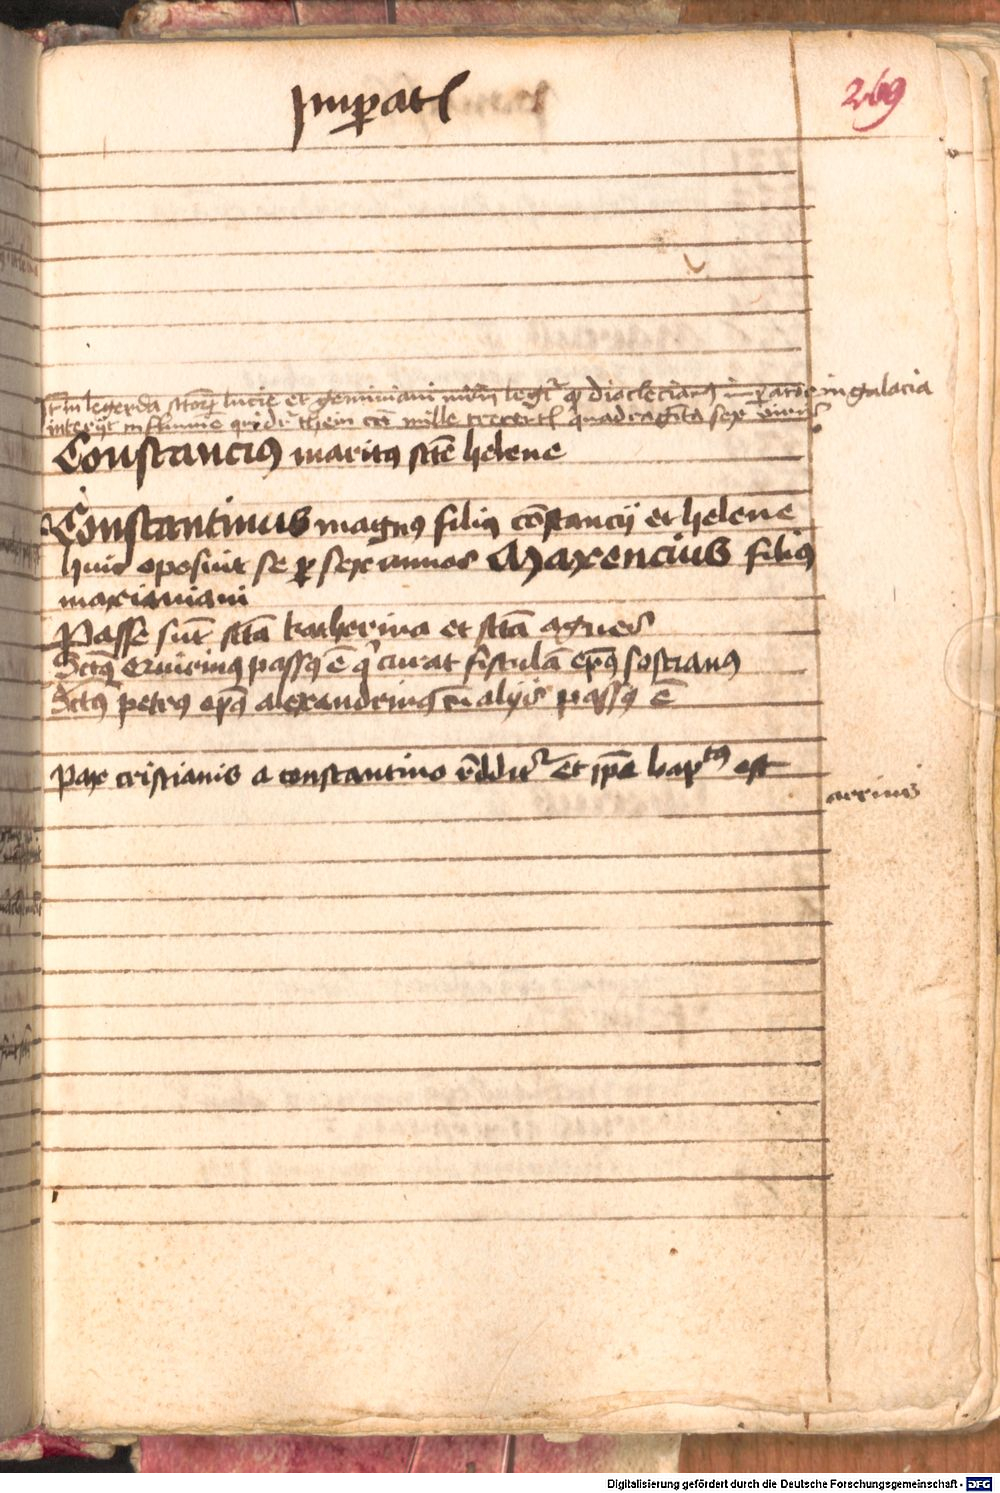 Imperatores
269
Item in legenda sanctorum lucie et geminiani martirum legitur quod dioclecianus in galacia
interiit in flumine qui dicitur cum mille trecentis quadraginta sex viris
Constancius maritus sancte helene
Constantinus magnus filius constancii et helene
huic oposuit se per sex annos Maxencius filius
maximiani
Passe sunt sancta katherina et sancta agnes
Sanctus Quirinus passus est qui curat fistulam episcopus soscianus
Sanctus petrus episcopus alexandrinus cum aliis passus est
Pax cristianis a constantino redditur Et ipse baptizatus est
arrius
Digitalisierung gefördert durch die Deutsche Forschungsgemeinschaft - DFG